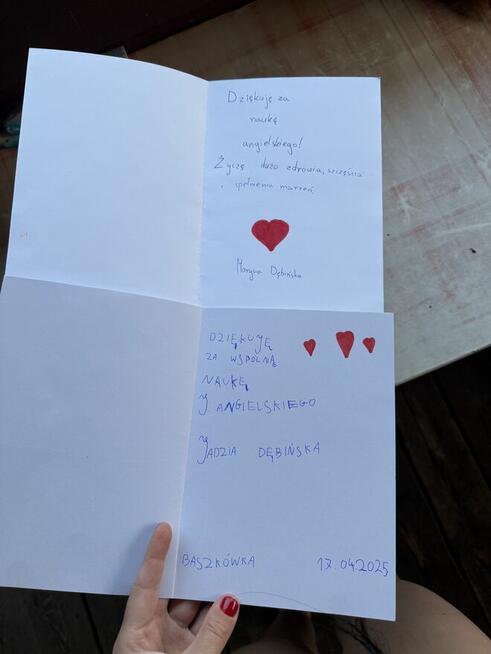 Dziękuję za
naukę
angielskiego!
Życzę dużo zdrowia, szczęścia
i spełnienia marzeń.
Maryna Dębińska
DZIĘKUJĘ
ZA WSPÓLNĄ
NAUKĘ
J ANGIELSKIEGO
JADZIA DĘBIŃSKA
BASZKÓWKA 17.04.2025